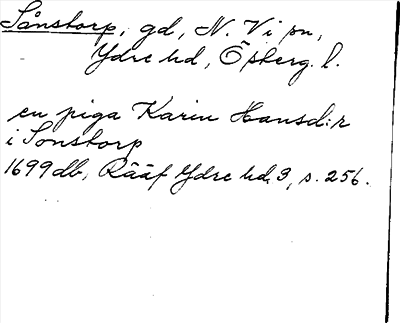 Sånstorp, gd, N. Vi sn,
Ydre hd, Österg. l.
en piga Karin Hansd:r
i Sonstorp
1699 db, Rääf Ydre hd 3, s. 256.